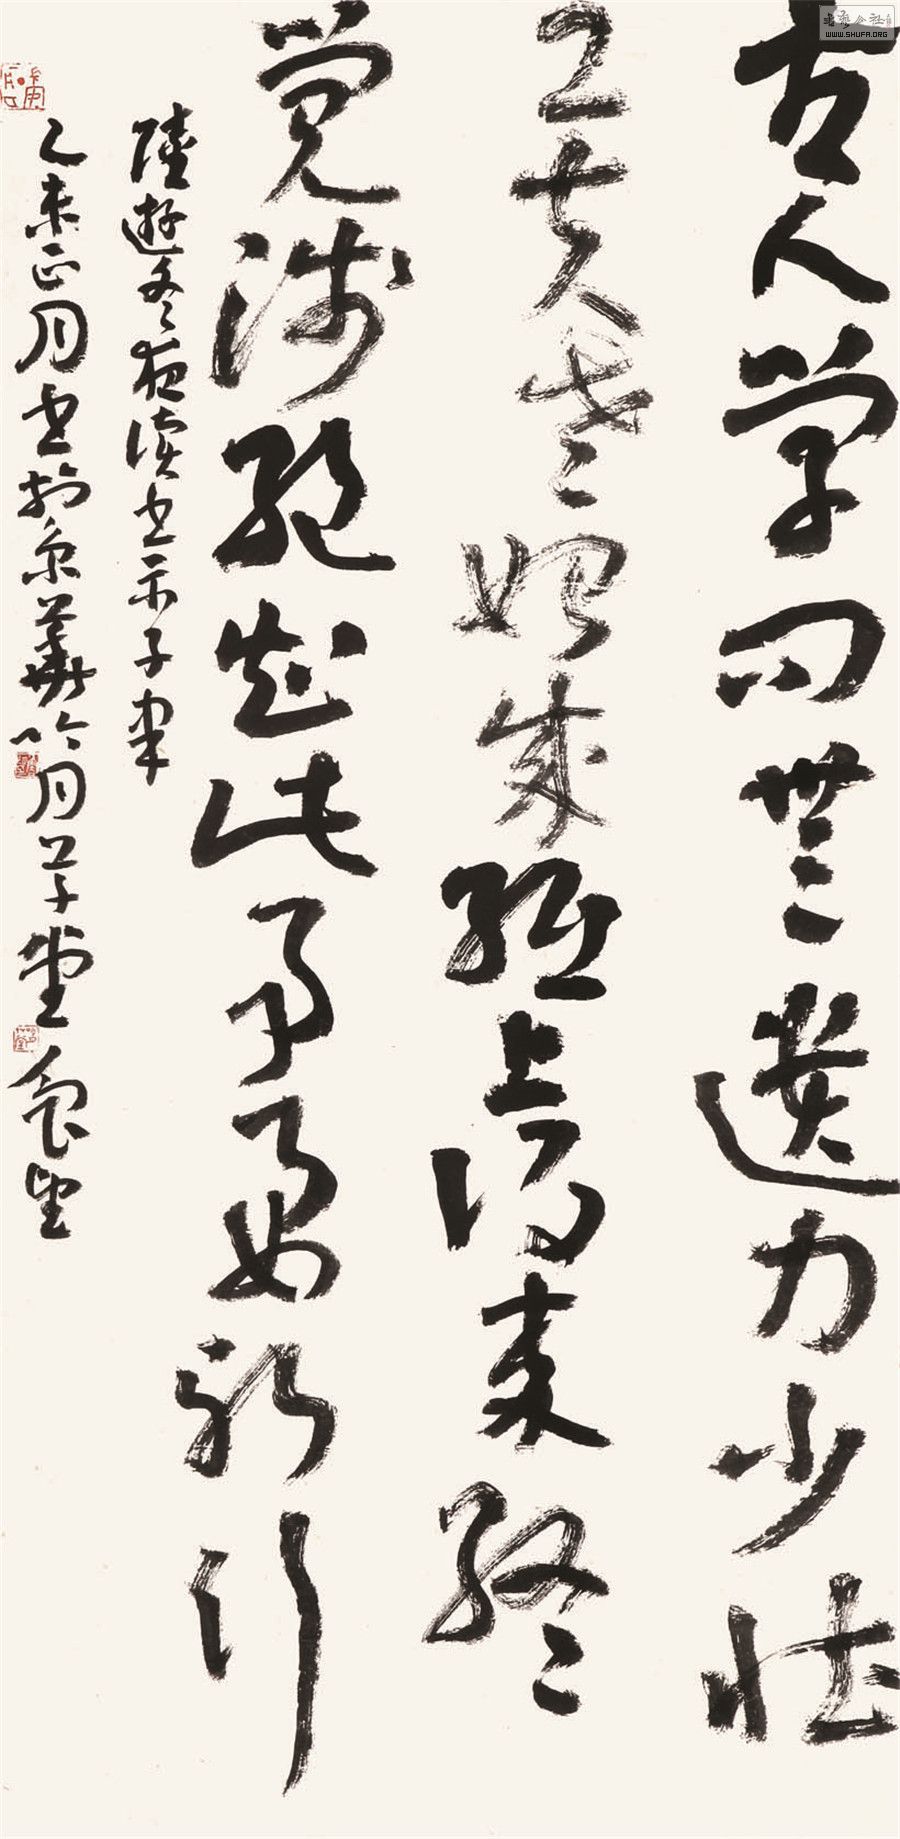 古人学问无遗力少壮
工夫老始成纸上得来终
觉浅绝知此事要躬行
陸遊冬夜读书示子聿
乙未正月书於京華吟月草堂
書藝公社
WWW.SHUFA.ORG